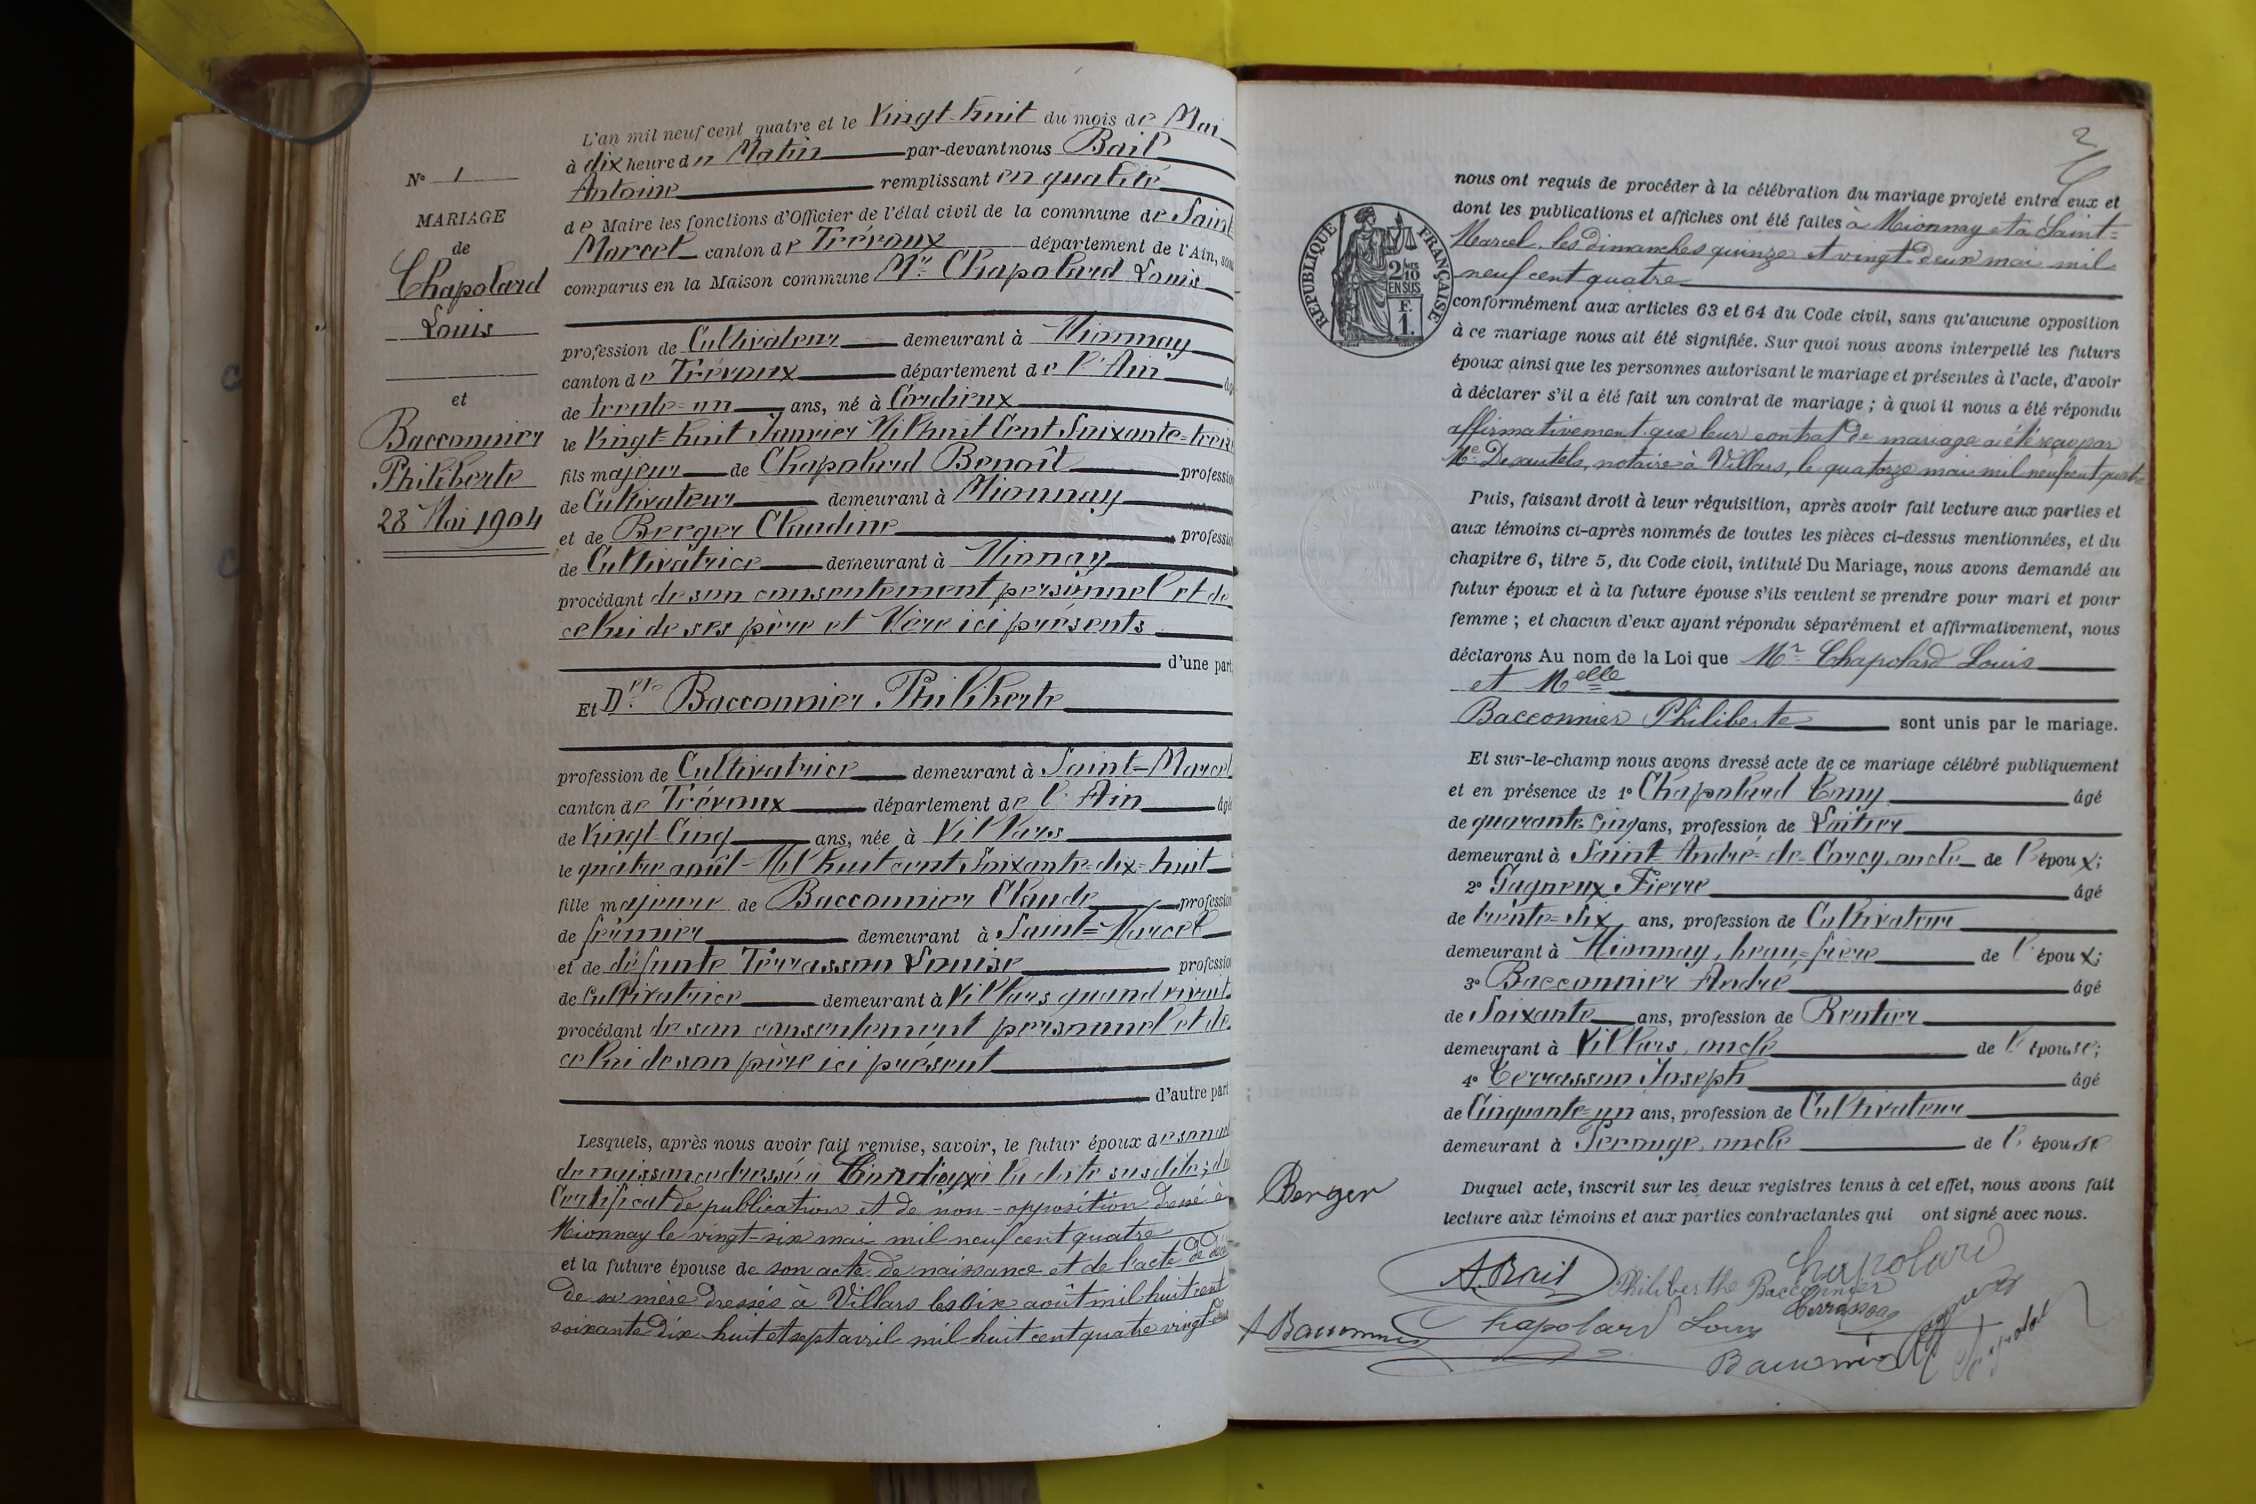 N° 1
MARIAGE
de
Chapolard
Louis
et
Bacconnier
Philiberte
28 Mai 1904
L'an mil neuf cent quatre et le Vingt-huit du mois de Mai
à dix heure du Matin par-devant nous Bail
Antoine remplissant en qualité
de Maire les fonctions d'Officier de l'état civil de la commune de Saint
Marcel canton de Trévoux département de l'Ain, sont
comparus en la Maison commune Mr Chapolard Louis
profession de Cultivateur demeurant à Mionnay
canton de Trévoux département de l'Ain âgé
de trente=un ans, né à Cordieux
le Vingt=huit Janvier Mil huit Cent Soixante=treize
fils majeur de Chapolard Benoît profession
de Cultivateur demeurant à Mionnay
et de Berger Claudine profession
de Cultivatrice demeurant à Mionnay
procédant de son consentement personnel et de
celui de ses père et Mère ici présents
d'une part,
Et Dlle Bacconnier Philiberte
profession de Cultivatrice demeurant à Saint=Marcel
canton de Trévoux département de l'Ain âgé
de Vingt=Cinq ans, née à Villars
le quatre août Mil huit cent Soixante=dix=huit
fille majeure de Bacconnier Claude profession
de fermier demeurant à Saint=Marcel
et de défunte Terrasson Louise profession
de Cultivatrice demeurant à Villars quand vivait
procédant de son consentement personnel et de
celui de son père ici présent
d'autre part
Lesquels, après nous avoir fait remise, savoir, le futur époux de son
de naissance dressé à à la date susdite; du
Certificat de publication et de non-opposition dressé à
Mionnay le vingt-six mai mil neuf cent quatre
et la future épouse de son acte de naissance et de l'acte de décès
de sa mère dressés à Villars les six août mil huit cent
soixante dix-huit et sept avril mil huit cent quatre vingt
2
RÉPUBLIQUE FRANÇAISE
2/10
EN SUS
F.
1.
nous ont requis de procéder à la célébration du mariage projeté entre eux et
dont les publications et affiches ont été faites à Mionnay et à Saint=
Marcel, les dimanches quinze et vingt deux mai mil
neuf cent quatre
conformément aux articles 63 et 64 du Code civil, sans qu'aucune opposition
à ce mariage nous ait été signifiée. Sur quoi nous avons interpellé les futurs
époux ainsi que les personnes autorisant le mariage et présentes à l'acte, d'avoir
à déclarer s'il a été fait un contrat de mariage ; à quoi il nous a été répondu
affirmativement que leur contrat de mariage a été reçu par
Me Desautels, notaire à Villars, le quatorze mai mil neuf cent quatre
Puis, faisant droit à leur réquisition, après avoir fait lecture aux parties et
aux témoins ci-après nommés de toutes les pièces ci-dessus mentionnées, et du
chapitre 6, titre 5, du Code civil, intitulé Du Mariage, nous avons demandé au
futur époux et à la future épouse s'ils veulent se prendre pour mari et pour
femme ; et chacun d'eux ayant répondu séparément et affirmativement, nous
déclarons Au nom de la Loi que Mr Chapolard Louis
et Melle
Bacconnier Philiberte sont unis par le mariage.
Et sur-le-champ nous avons dressé acte de ce mariage célébré publiquement
et en présence de 1° Chapolard âgé
de quarante cinq ans, profession de Laitier
demeurant à Saint-André-de-Corcy, oncle de l'époux;
2° Gagneux Pierre âgé
de trente=six ans, profession de Cultivateur
demeurant à Mionnay, beau=frère de l'époux;
3° Bacconnier André âgé
de Soixante ans, profession de Rentier
demeurant à Villars, oncle de l'épouse;
4° Terrasson Joseph âgé
de Cinquante=un ans, profession de Cultivateur
demeurant à Perouge, oncle de l'épouse
Duquel acte, inscrit sur les deux registres tenus à cet effet, nous avons fait
lecture aux témoins et aux parties contractantes qui ont signé avec nous.
Berger
Chapolard
A. Bail
Philiberthe Bacconnier
Terrasson
Chapolard Louis